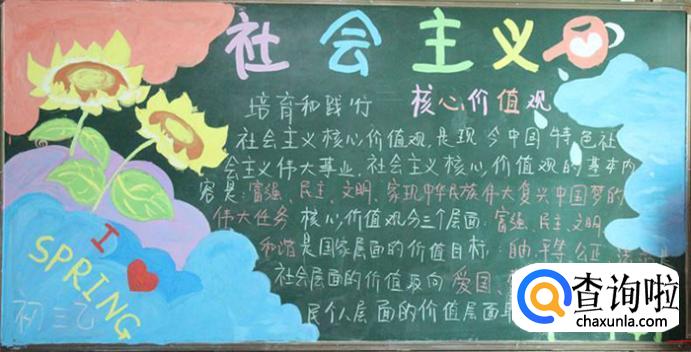 社会主义
培育和践行 核心价值观
社会主义核心价值观,是现今中国特色社
会主义伟大事业.社会主义核心价值观的基本内
容是:富强、民主、文明、家现中华民族伟大复兴中国梦的
伟大任务 核心价值观分三个层面:富强、民主.文明
和谐是国家层面的价值目标: 平等 公正
社会层面的价值取向 爱国、
民个人层面的价值层面
I
SPRING
初三乙
查询啦
chaxunla.com